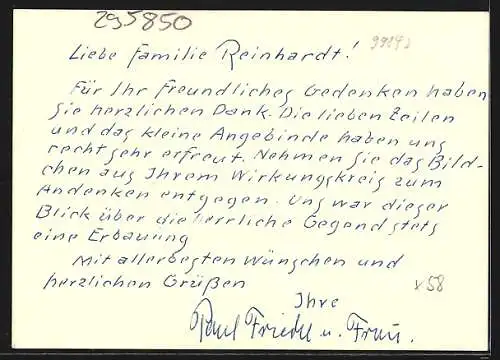 295850
Liebe Familie Reinhardt!
Für Ihr freundliches Gedenken haben
Sie herzlichen Dank. Die lieben Zeilen
und das kleine Angebinde haben uns
recht sehr erfreut. Nehmen Sie das Bild-
chen aus Ihrem Wirkungskreis zum
Andenken entgegen. Uns war dieser
Blick über die herrliche Gegend stets
eine Erbauung
Mit allerbesten Wünschen und
herzlichen Grüßen
v58
Ihre
Paul Friedel u. Frau.